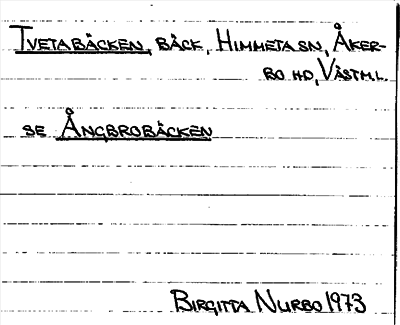 TVETABÄCKEN, BÄCK, HIMMETA SN, ÅKER-
BO HD, VÄSTML.
SE ÄNGBROBÄCKEN
BIRGITTA NURBO 1973